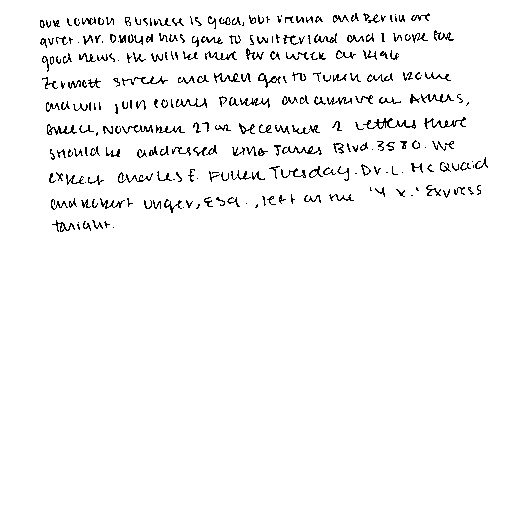 our London Business is good, but Vienna and Berlin are
quiet. Mr. D. Lloyd has gone to Switzerland and I hope for
good news. He will be there for a week at 1496
Zermott Street and then goes to Turin and Rome
and will join Colonel Parry and arrive at Athens,
Greece, November 27 or December 2. Letters there
should be addressed King James Blvd. 3580. We
expect Charles E. Fuller Tuesday. Dr. L. McQuaid
and Robert Unger, Esq., left on the "Y X." Express
tonight.